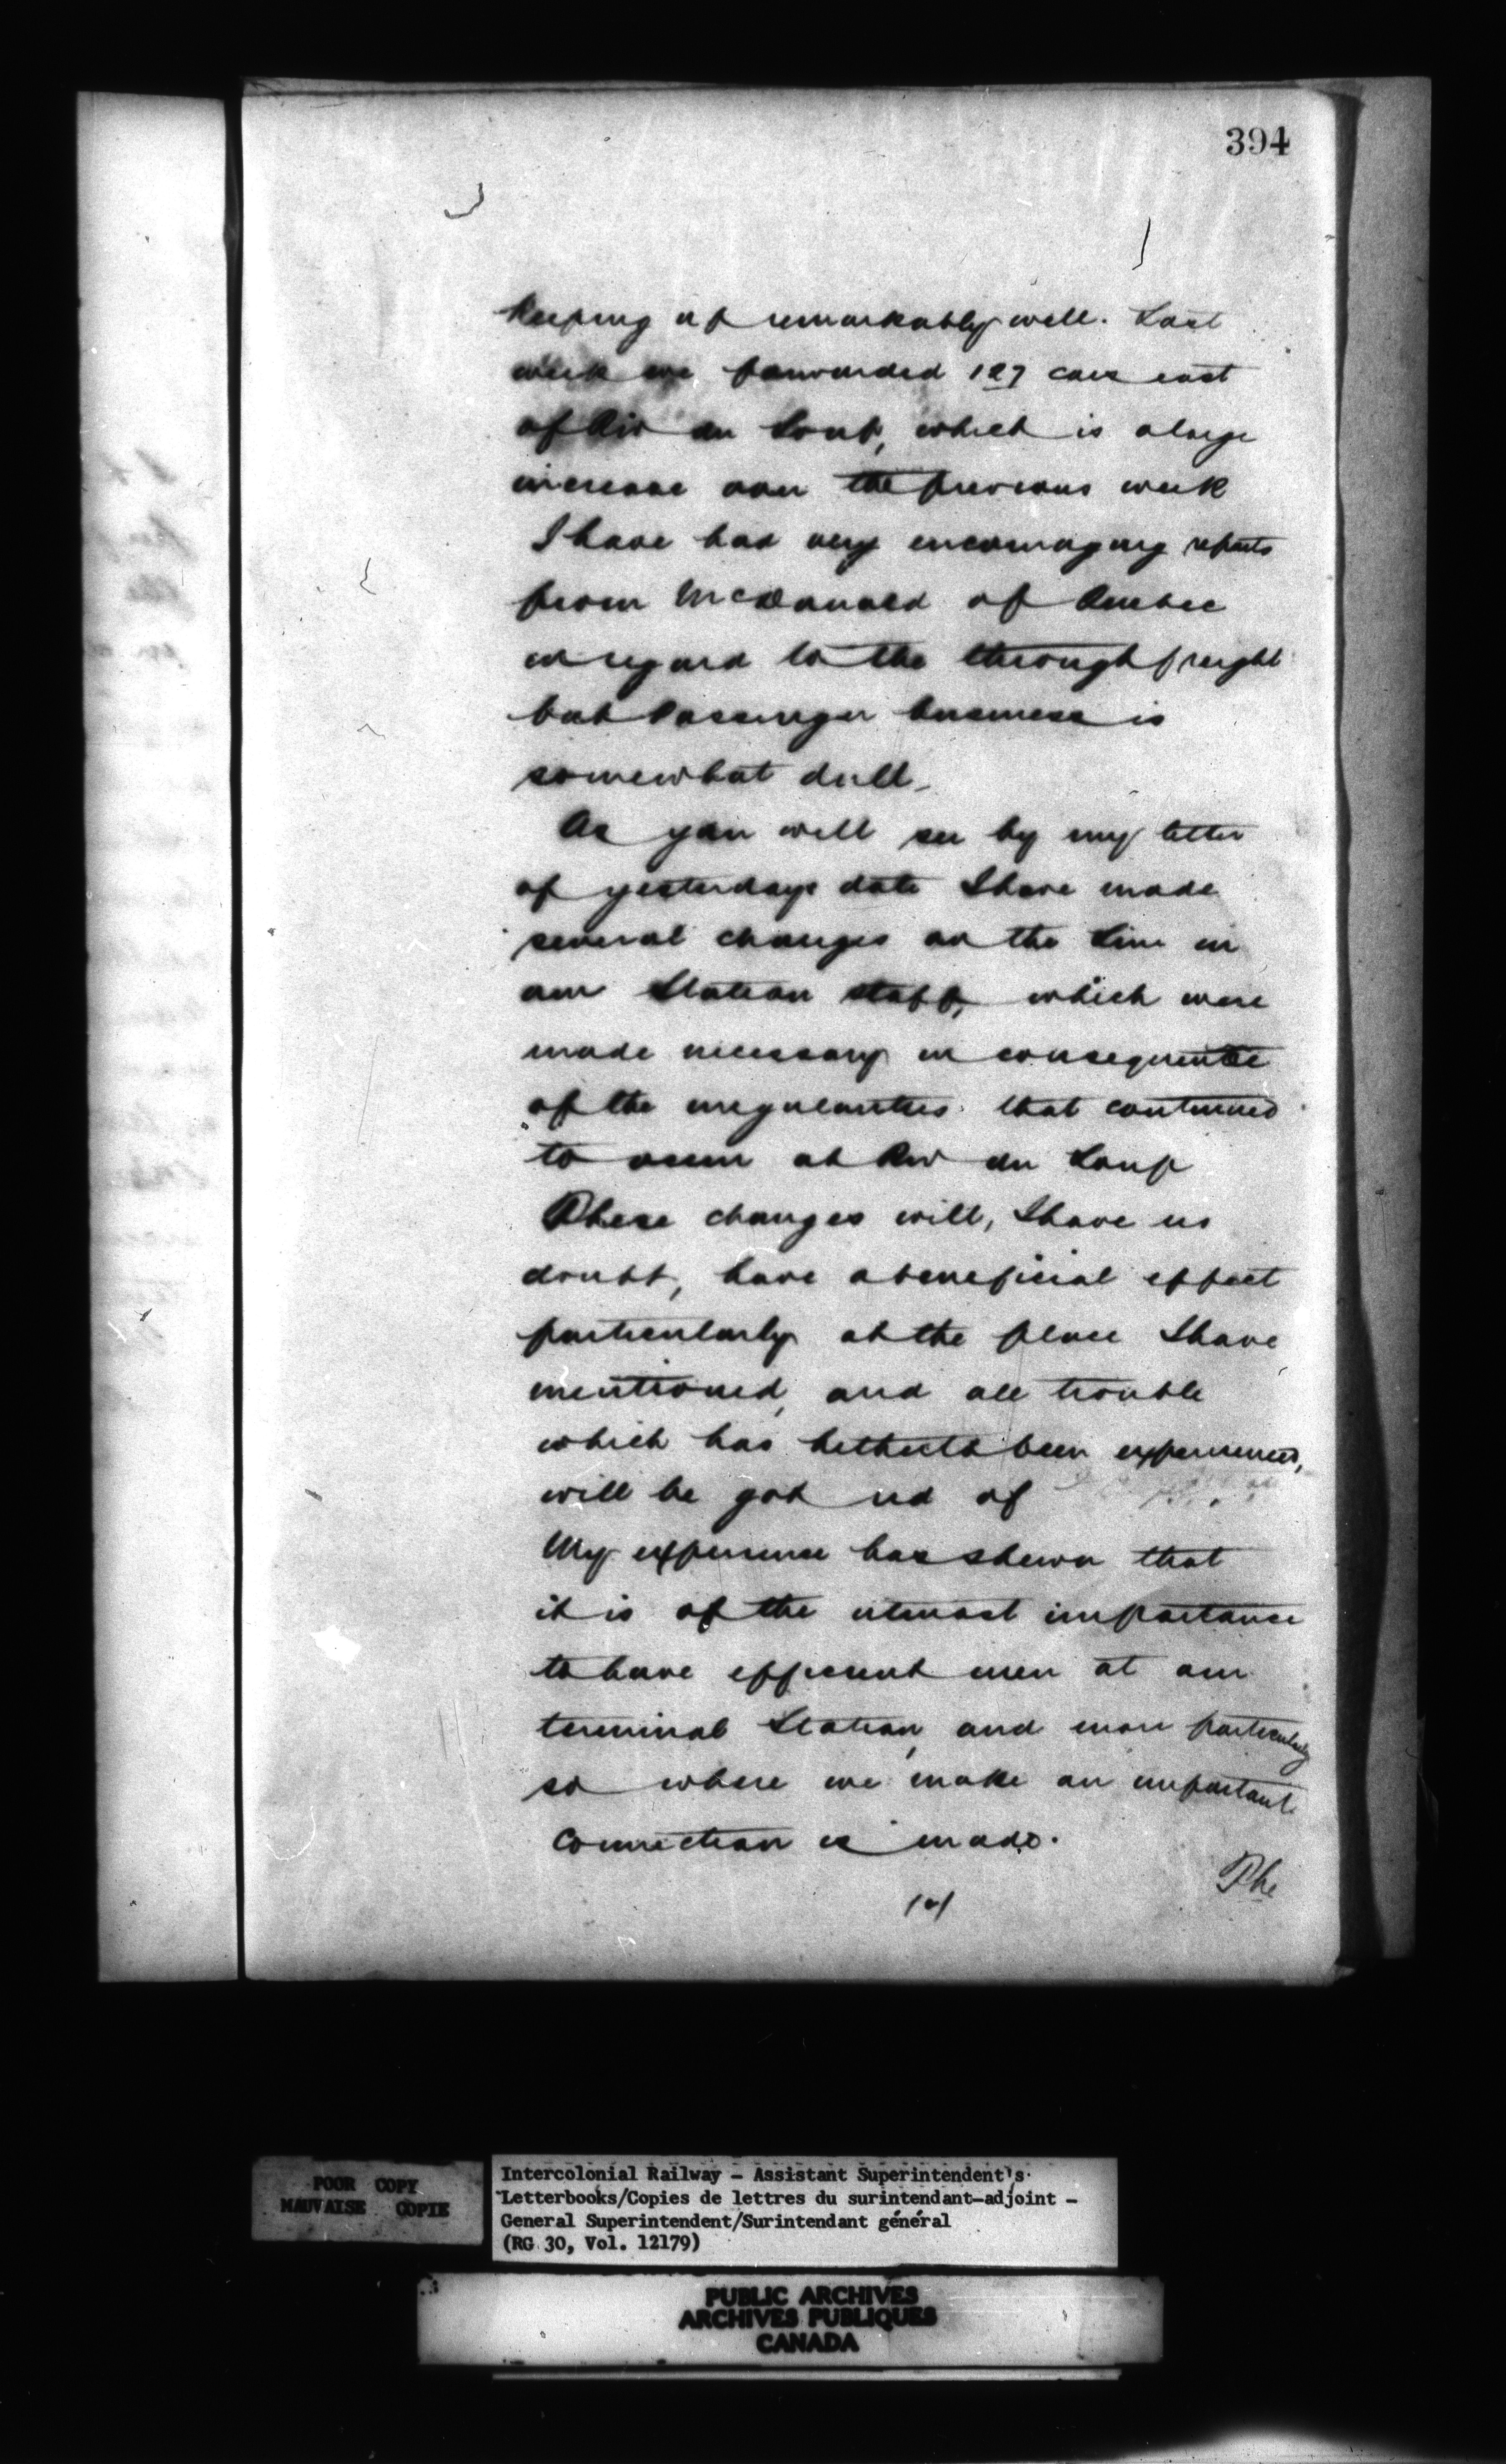 394
keeping up remarkably well. Last
week we forwarded 127 cars east
of Riv du Loup, which is a large
increase over the previous week
I have had very encouraging reports
from McDonald of Quebec
in regard to the through freight
but Passenger business is
somewhat dull.
As you will see by my letter
of yesterdays date I have made
several changes on the Line in
our Station staff, which were
made necessary in consequence
of the irregularities that continued
to occur at Riv du Loup
These changes will, I have no
doubt, have a beneficial effect
particularly at the place I have
mentioned, and all trouble
which has hitherto been experienced,
will be got rid of
My experience has shewn that
it is of the utmost importance
to have efficient men at our
terminal Station, and more particularly
so where we make an important
connection is made.
The
POOR COPY
MAUVAISE COPIE
Intercolonial Railway - Assistant Superintendent's
Letterbooks/Copies de lettres du surintendant-adjoint -
General Superintendent/Surintendant général
(RG 30, Vol. 12179)
PUBLIC ARCHIVES
ARCHIVES PUBLIQUES
CANADA